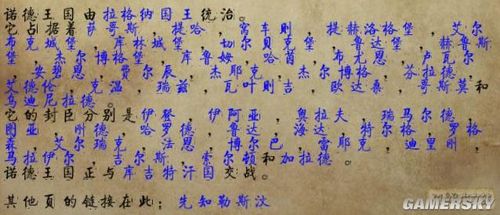 诺德王国由拉格纳国王统治。
它占据着萨哥斯 提哈，窝车则 提赫洛格堡，艾尔
布克城堡 ，库林城堡 ，切尔贝克堡 ，鲁达堡 ，赫鲁斯
堡 ，杰尔博格堡 ，库鲁姆，哈布 ，布尤恩 ，卢瓦尔
，安碧恩 ，贾尔 辰，杰耶克 ，杰尔博格 ，芬拉德
艾德伦 ，克温 ，瑞兹 ，瓦叶则吉 ，欧达泰 ，哥斯莫和
乌迪尼拉德。
它的封臣分别是伊登 ，伊阿亚 ，奥拉夫 ，瑞马尔
图亚 ，刚德 ，哈罗德 ，鲁达 ，海达 ，特尔格 ，罗格
森 ，艾尔 瑞克 ，法恩 ，博尔巴 ，雷瑞克 ，迪里刚 ，
马拉伊尔 ，吉尔斯 ，索尔顿和加拉德。
诺德王国正与库吉特汗国交战。
其他页的链接在此：先知勒斯汶
GAMERSKY